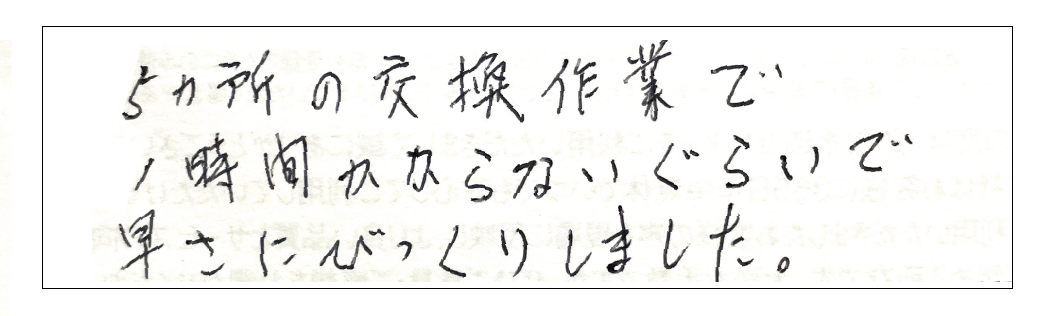 5ヵ所の交換作業で
1時間かからないぐらいで
早さにびっくりしました。